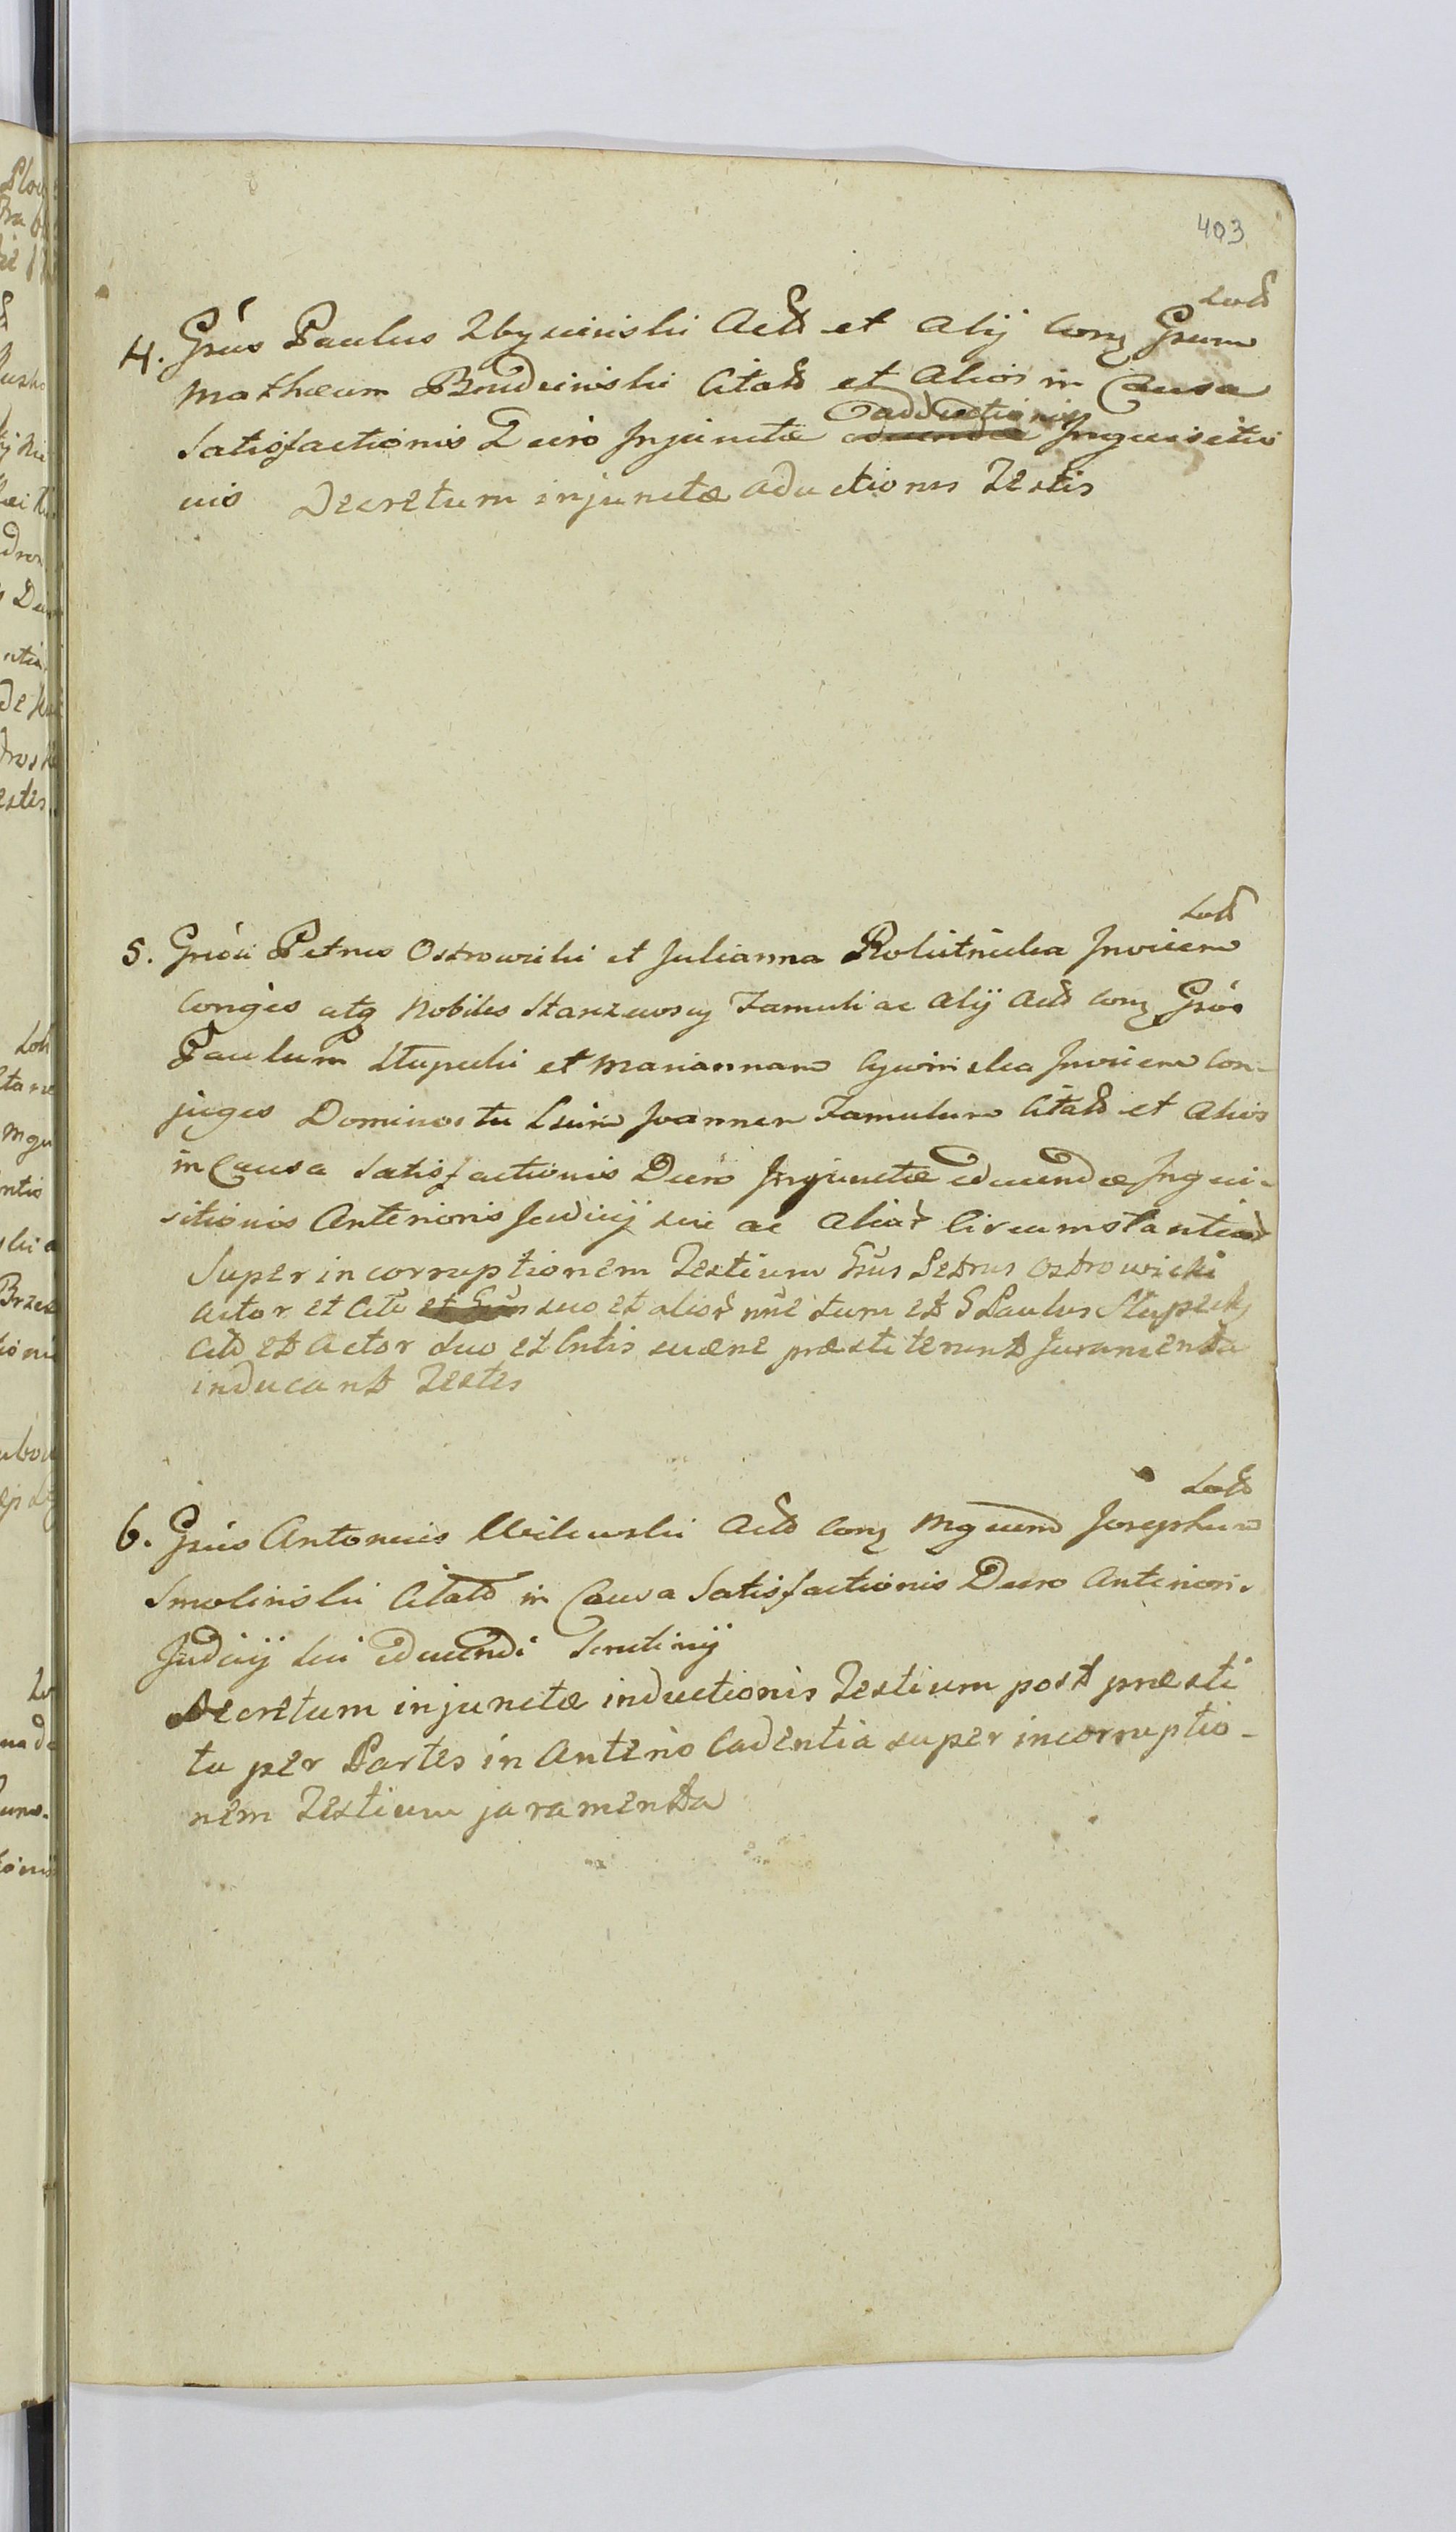 403
4. Grüs Paulus Zbyszinski Actd et Alij Conq Grum
Matheum Brudzinski Citatd et Alios in Causa
Satisfactionis Decro Injunctæ adductionis Inquisitio
nis Decretum injunctæ aductionis Testis
5. Grösi Petrus Ostrowicki et Julianna Rokitnicka Invicem
Conges atq Nobiles Famuli ac Alij Actd Conq Grös
Paulum Stupecki et Mariannam Invicem Con-
juges Dominos tu Joannem Famulum Citatd et Alios
in Causa Satisfactionis Decro Injunctæ educendæ Inqui-
sitionis Anterioris Judicij sui ac Aliar Circumstantiar
Super incorruptionem Testium Grüs Petrus Ostrowicki
Actor et Citü suo et alior nñe tum et G Paulus Stupecki
Citd et Actor suo et præstiterunt Juramenta
inducant Testes
6. Grüs Antonius Milewski Actd Conq Mgcum Josephum
Smolinski Citatd in Causa Satisfactionis Decro Anterioris
Judicij sui educendi Scrutinij
Decretum injunctæ inductionis Testium post præsti
ta per Partes in Anterio Cadentia super incorruptio-
nem Testium juramenta